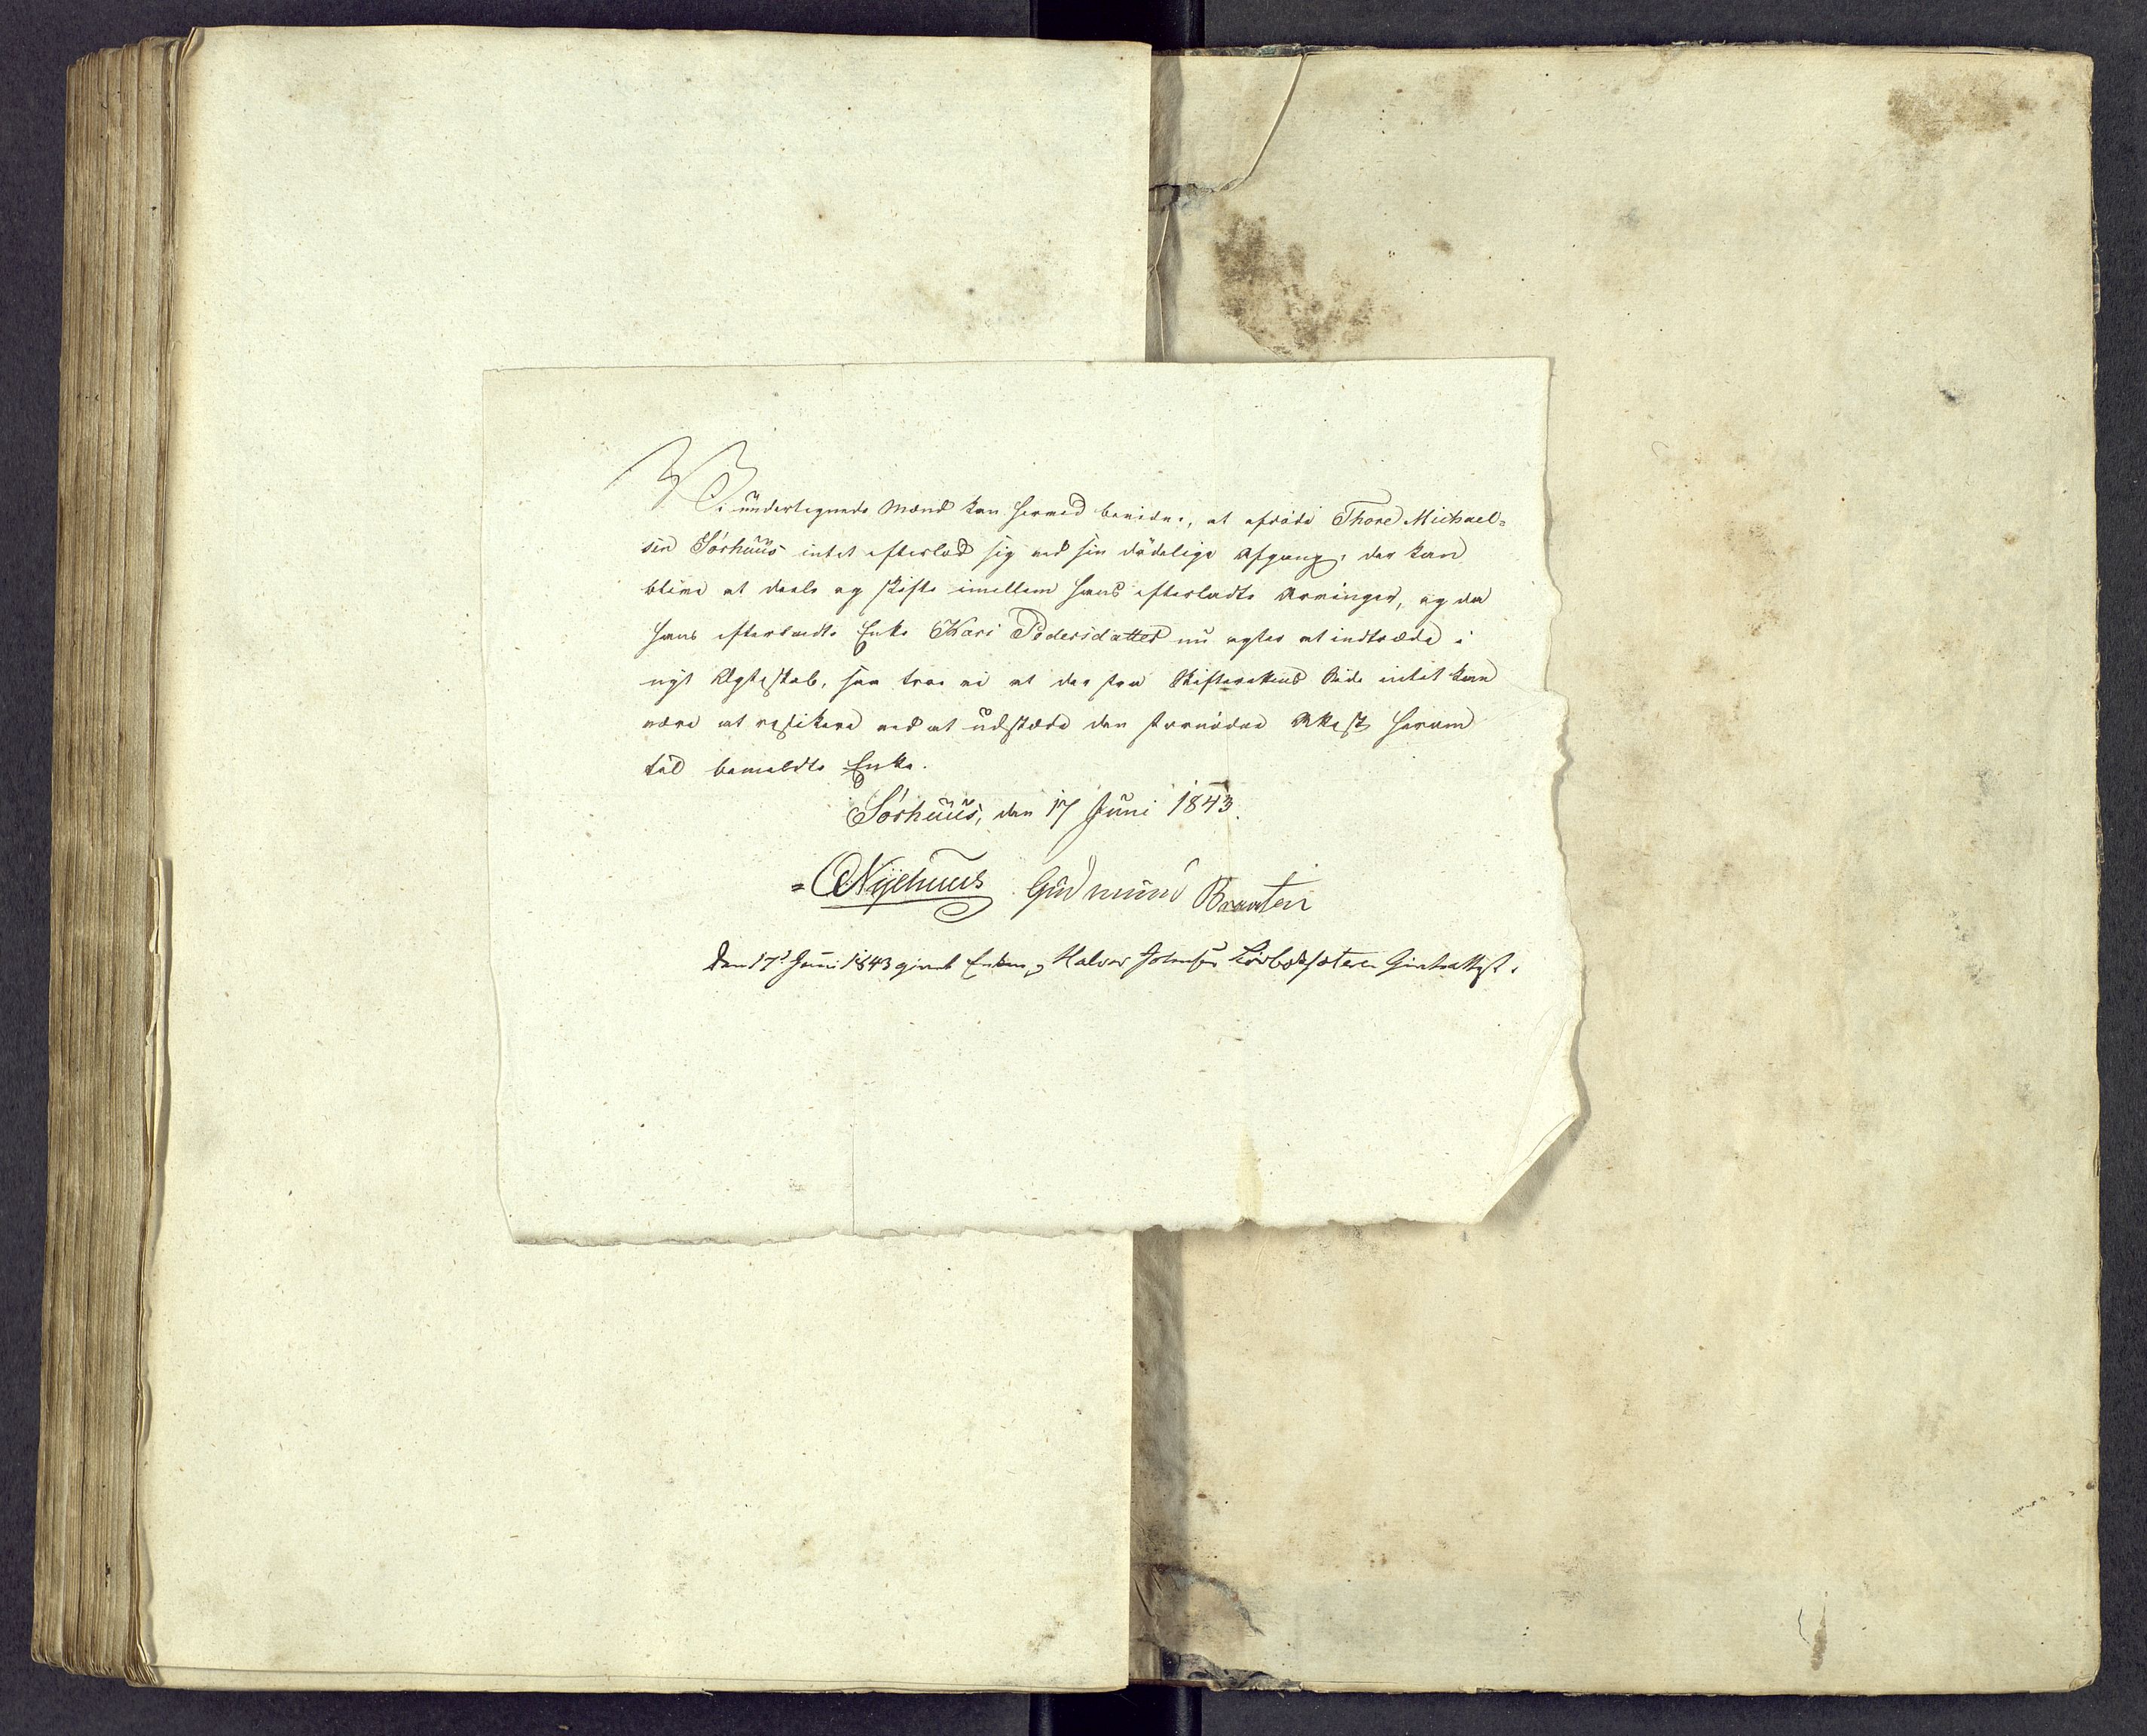 Vi undertegnede Mænd kan hermed bevidne, at afdöde Thore Michael=
sen Sörhuus intet efterlod sig ved sin dödelige Afgang, der kan
blive at deele og skifte imellem hans efterladte Arvinger, og da
hans efterladte Enke Kari Pedersdatter nu agter at indtræde i
nyt Ægteskab, saa troe vi at der fra Skifterettens Side intet kan
være at resikere ved at udstæde den fornödne Attest herom
til bemeldte Enke.
Sörhuus, den 17 Juni 1843.
Nyehuus Gudmund Braaten
Den 17de Juni 1843 givet Enken og Halvor Johnsen